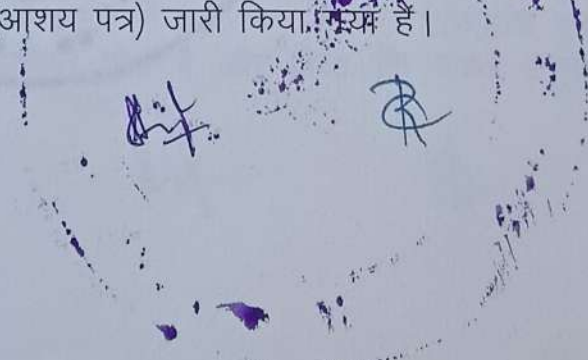 आशय पत्र) जारी किया गया है।